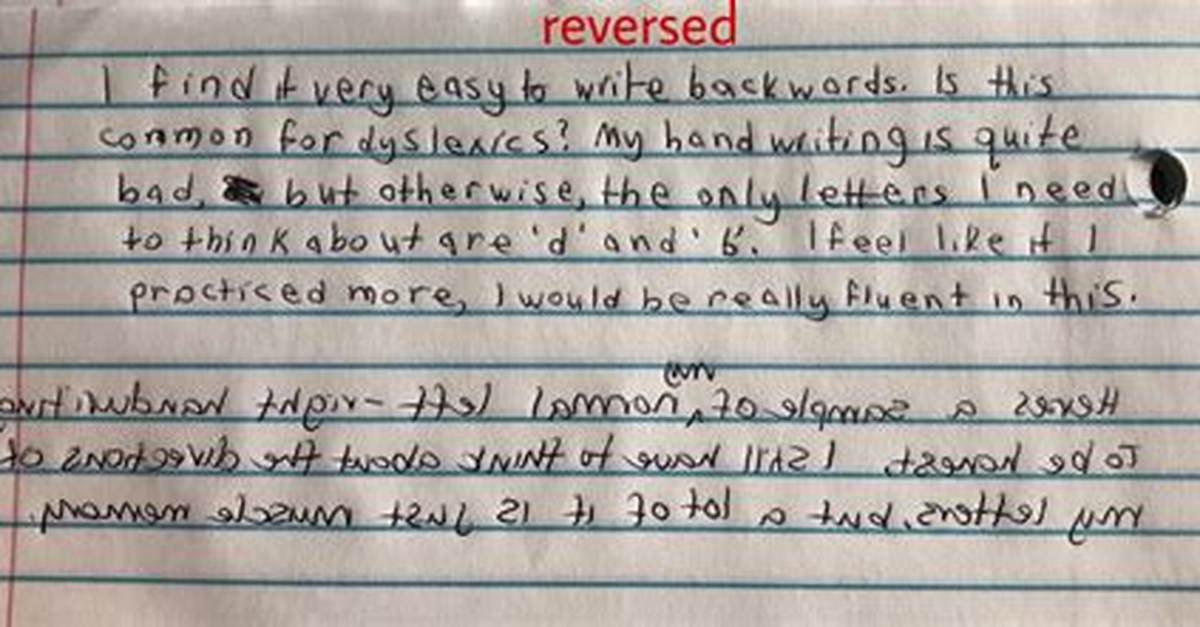 reversed
I find it very easy to write backwords. Is this
common for dyslexics? My handwriting is quite
bad, but otherwise, the only letters I need
to think about are 'd' and 'b'. I feel like if I
practiced more, I would be really fluent in this.
my
Heres a sample of normal left-right handwriting
To be honest I still have to think about the directions of
my letters, but a lot of it is just muscle memory.